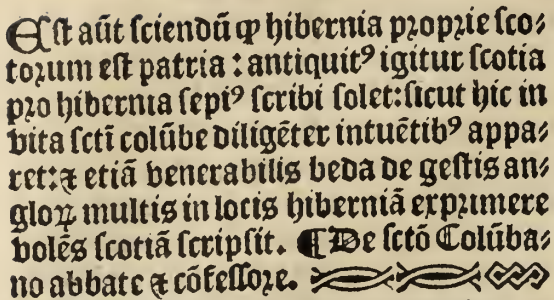 Eſt aūt ſciendū ꝙ hibernia pꝛopꝛie ſco⸗
toꝛum eſt patria : antiquitꝰ igitur ſcotia
pꝛo hibernia ſepiꝰ ſcribi ſolet:ſicut hic in
vita ſcti colūbe diligēter intuētibꝰ appa⸗
ret:⁊ etiā venerabilis beda de geſtis an⸗
gloꝝ multis in locis hiberniā expꝛimere
volēs ſcotiā ſcripſit. ¶ De ſctō Colūba⸗
no abbate ⁊ cōfeſſoꝛe.